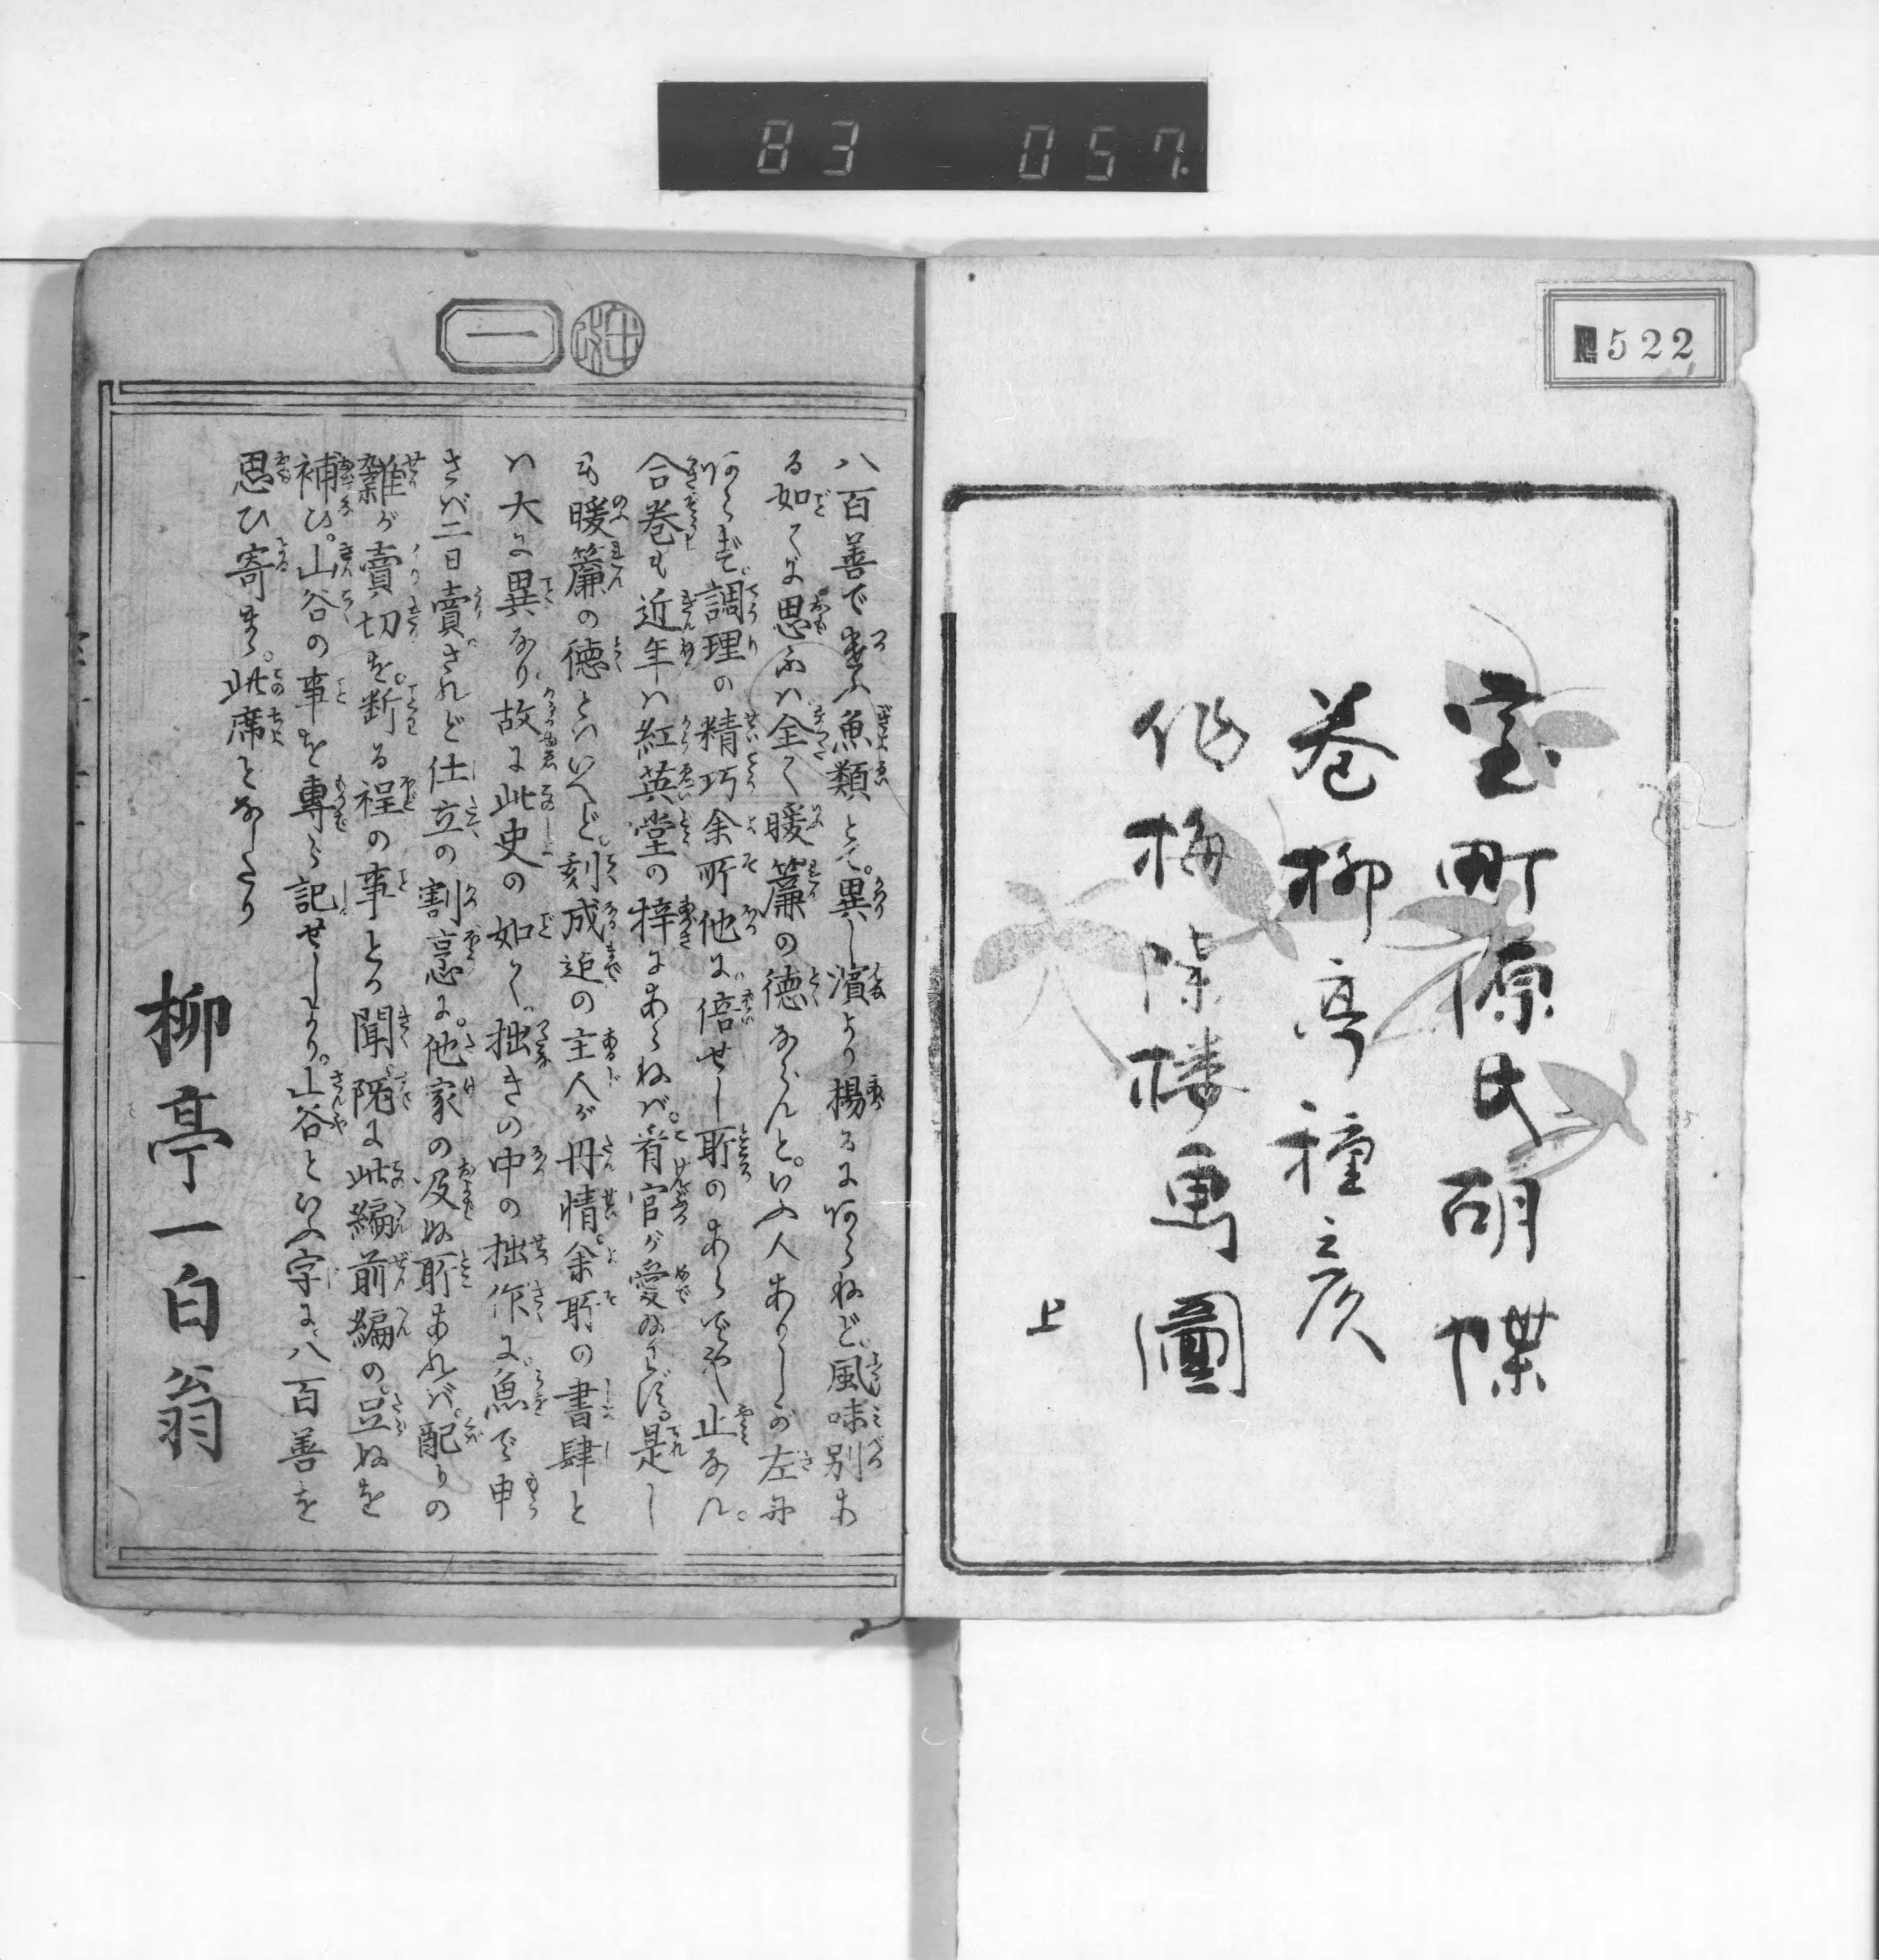 83 057
№522
室町源氏胡蝶
巻柳亭種彦
作梅蝶楼画圖
上
一
八百善で遣ふ魚類とて。異し濱より揚るにあらねど。風味別あ
る如くに思ふハ全く暖簾の徳ならんと。いふ人ありしが左に
あらず。調理の精巧余所他に倍せし所のあらでや止なん。
合巻も近年ハ紅英堂の梓にあらねバ。看官が愛給ハず。是し
も暖簾の徳とハいへど。刻成迄の主人が丹情。余所の書肆と
ハ大に異なり故に此史の如く。拙きの中の拙作に。魚で申
さバ二日賣。されど仕立の割烹に。他家の及ぬ所あれバ。配りの
雑が賣切を。断る程の事とか聞。既に此編前編の。足ぬを
補ひ。山谷の事を専ら記せしより。山谷といふ字に。八百善を
思ひ寄ます。此席となしたり
柳亭一白翁